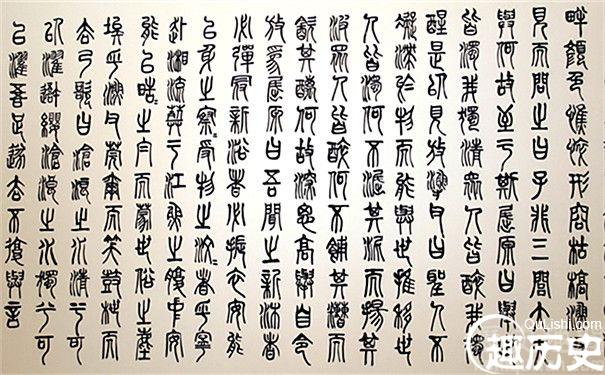 畔顏色憔悴形容枯槁漁父
見而問之曰子非三閭大夫
與何故至于斯屈原曰舉世
皆濁我獨清眾人皆醉我獨
醒是以見放漁父曰聖人不
凝滯於物而能與世推移世
人皆濁何不淈其泥而揚其
波眾人皆醉何不餔其糟而
歠其醨何故深思高舉自令
放為屈原曰吾聞之新沐者
必彈冠新浴者必振衣安能
以身之察〻受物之汶〻者乎寧
赴湘流葬于江魚之腹中安
能以皓〻之白而蒙世俗之塵
埃乎漁父莞爾而笑鼓枻而
去乃歌曰滄浪之水清兮可
以濯吾纓滄浪之水濁兮可
以濯吾足遂去不復與言
QuLishi.com
趣历史